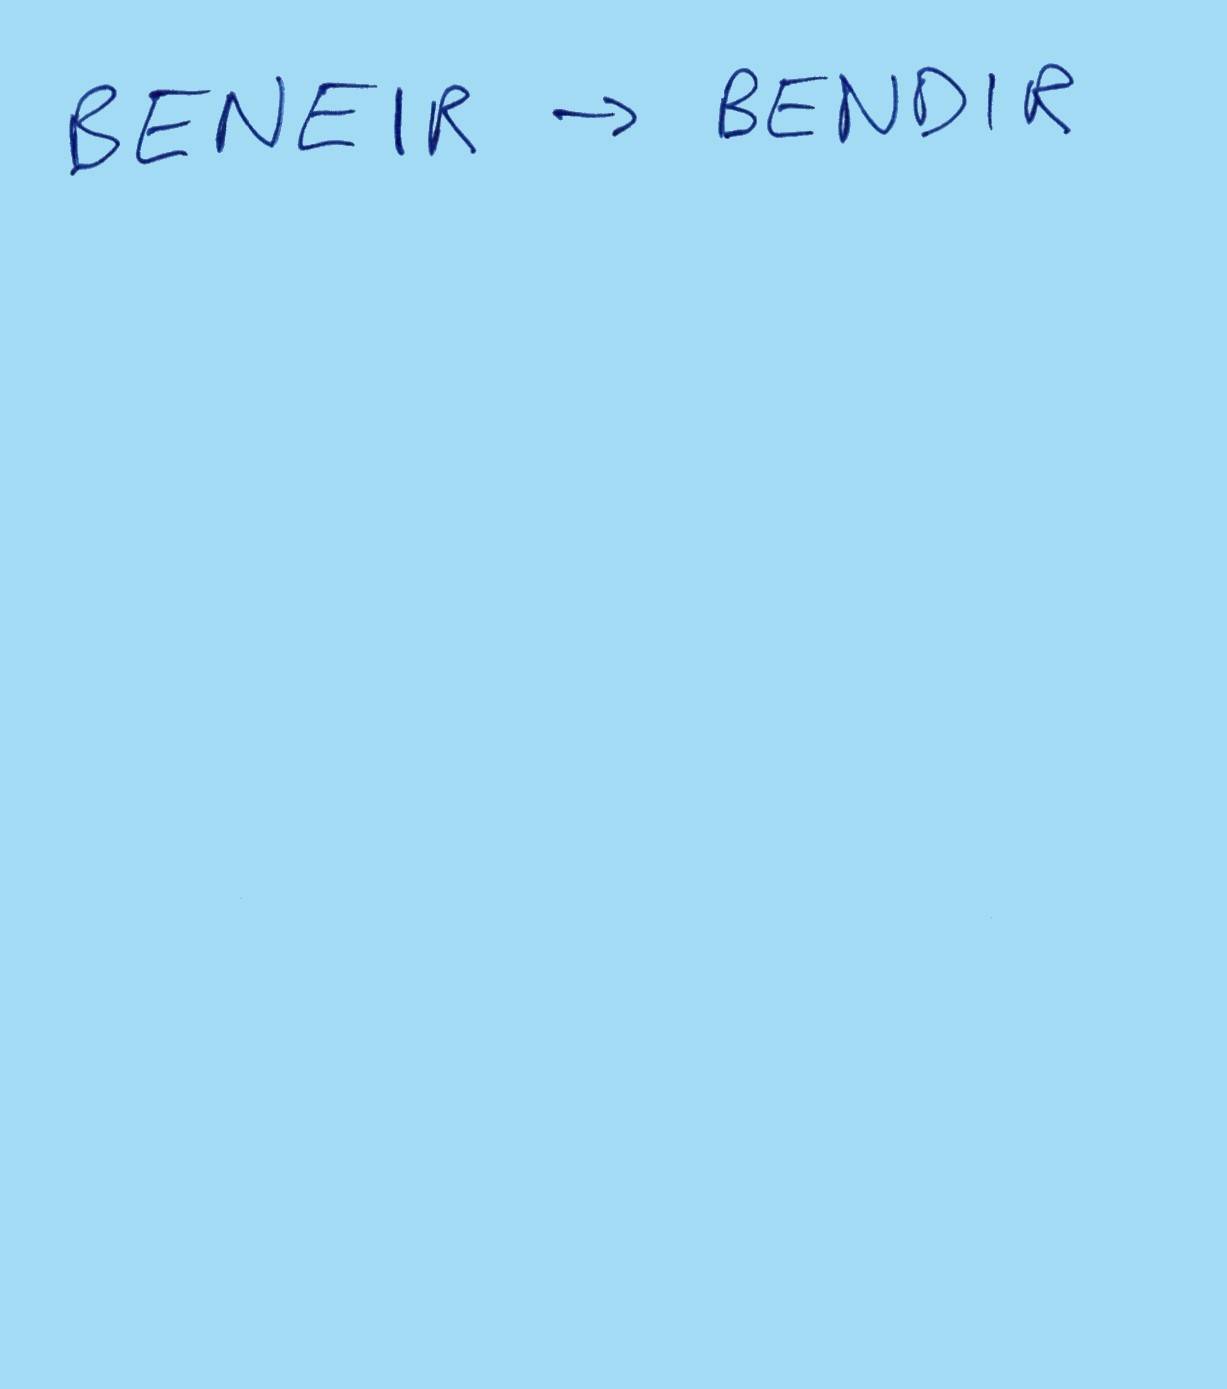 BENEIR → BENDIR